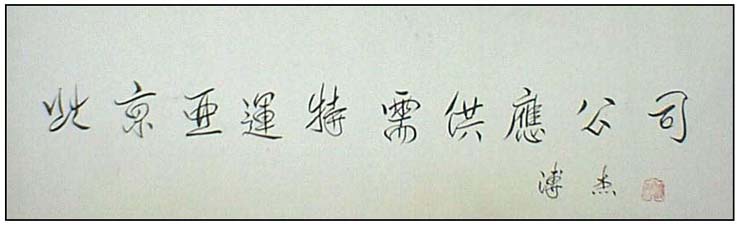 北京亜運特需供應公司
溥杰